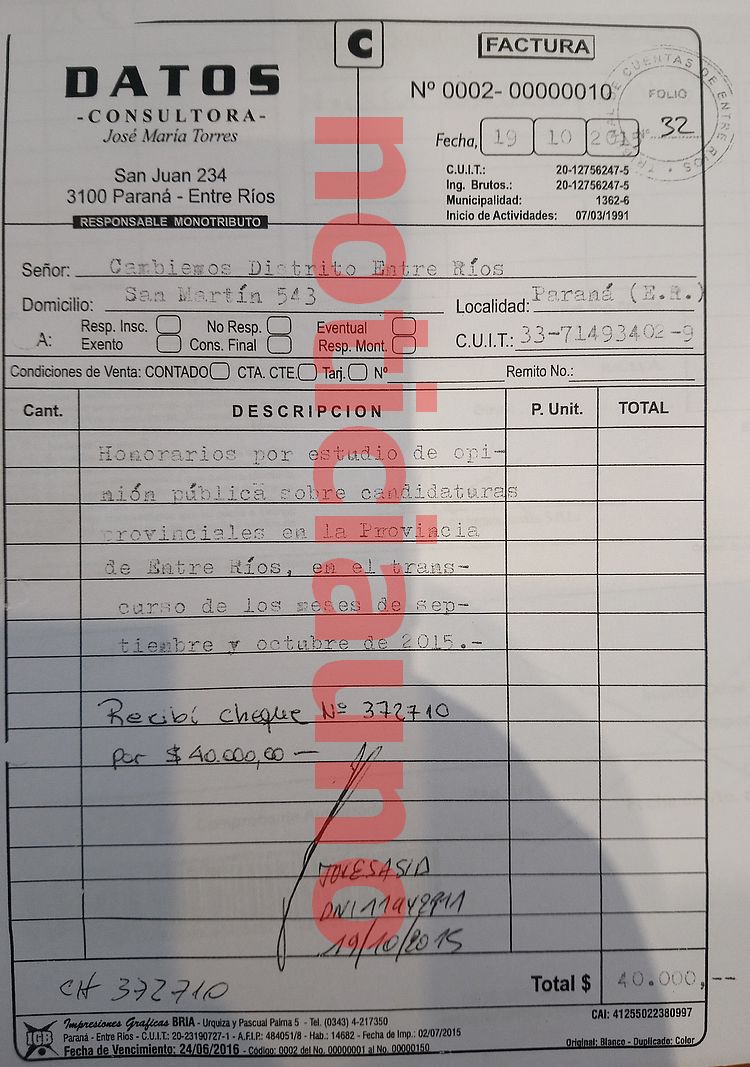 C
FACTURA
DATOS
-CONSULTORA-
José María Torres
San Juan 234
3100 Paraná - Entre Ríos
RESPONSABLE MONOTRIBUTO
Nº 0002- 00000010
Fecha, 19 10 2015
CUENTAS DE ENTRE RIOS
FOLIO
Nº 32
C.U.I.T.: 20-12756247-5
Ing. Brutos.: 20-12756247-5
Municipalidad: 1362-6
Inicio de Actividades: 07/03/1991
Señor: Cambiemos Distrito Entre Ríos
Domicilio: San Martín 543
Localidad: Paraná (E.R.)
A: Resp. Insc. No Resp. Eventual
Exento Cons. Final Resp. Mont.
C.U.I.T.: 33-71493402-9
Condiciones de Venta: CONTADO CTA. CTE. Tarj. Nº Remito No.:
Cant. DESCRIPCION P. Unit. TOTAL
Honorarios por estudio de opi-
nión pública sobre candidaturas
provinciales en la Provincia
de Entre Ríos, en el trans-
curso de los meses de sep-
tiembre y octubre de 2015.-
Recibí cheque Nº 372710
por $ 40.000,00 —
DNI 11942911
19/10/2015
CH 372710
Total $ 40.000,--
CAI: 41255022380997
IGB
Impresiones Gráficas BRIA - Urquiza y Pascual Palma 5 - Tel. (0343) 4-217350
Paraná - Entre Ríos - C.U.I.T.: 20-23190727-1 - A.F.I.P.: 484051/8 - Hab.: 14682 - Fecha de Imp.: 02/07/2015
Fecha de Vencimiento: 24/06/2016 - Código: 0002 del No. 00000001 al No. 00000150
Original: Blanco - Duplicado: Color
noticiauno